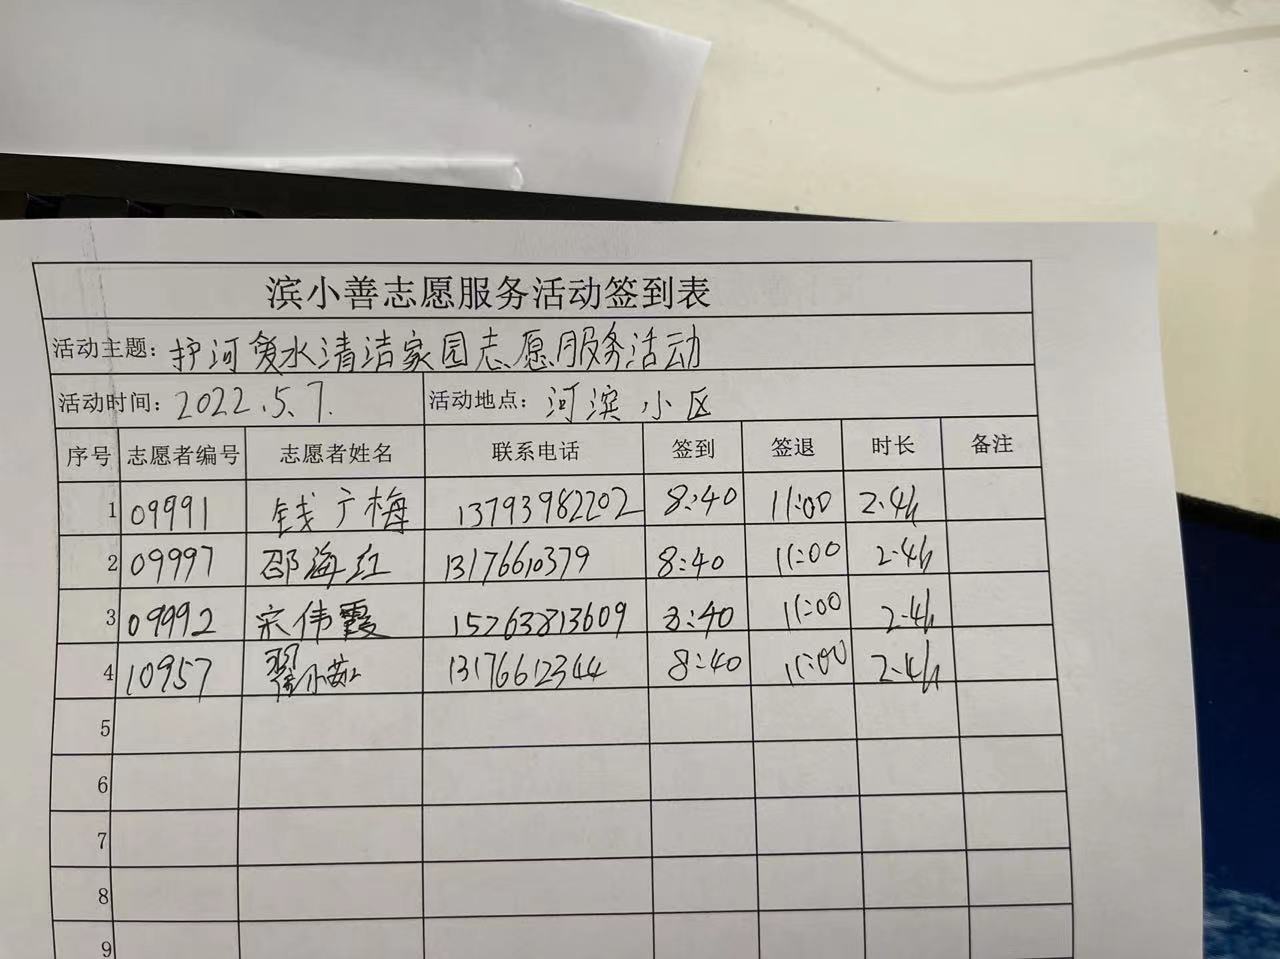 滨小善志愿服务活动签到表
活动主题：护河爱水清洁家园志愿服务活动
活动时间：2022.5.7. 活动地点：河滨小区
序号 志愿者编号 志愿者姓名 联系电话 签到 签退 时长 备注
1 09991 钱广梅 13793982202 8:40 11:00 2.4h
2 09997 邵海红 13176610379 8:40 11:00 2.4h
3 09992 宋伟霞 15263813609 8:40 11:00 2.4h
4 10957 翟小茹 13176612344 8:40 11:00 2.4h
5
6
7
8
9